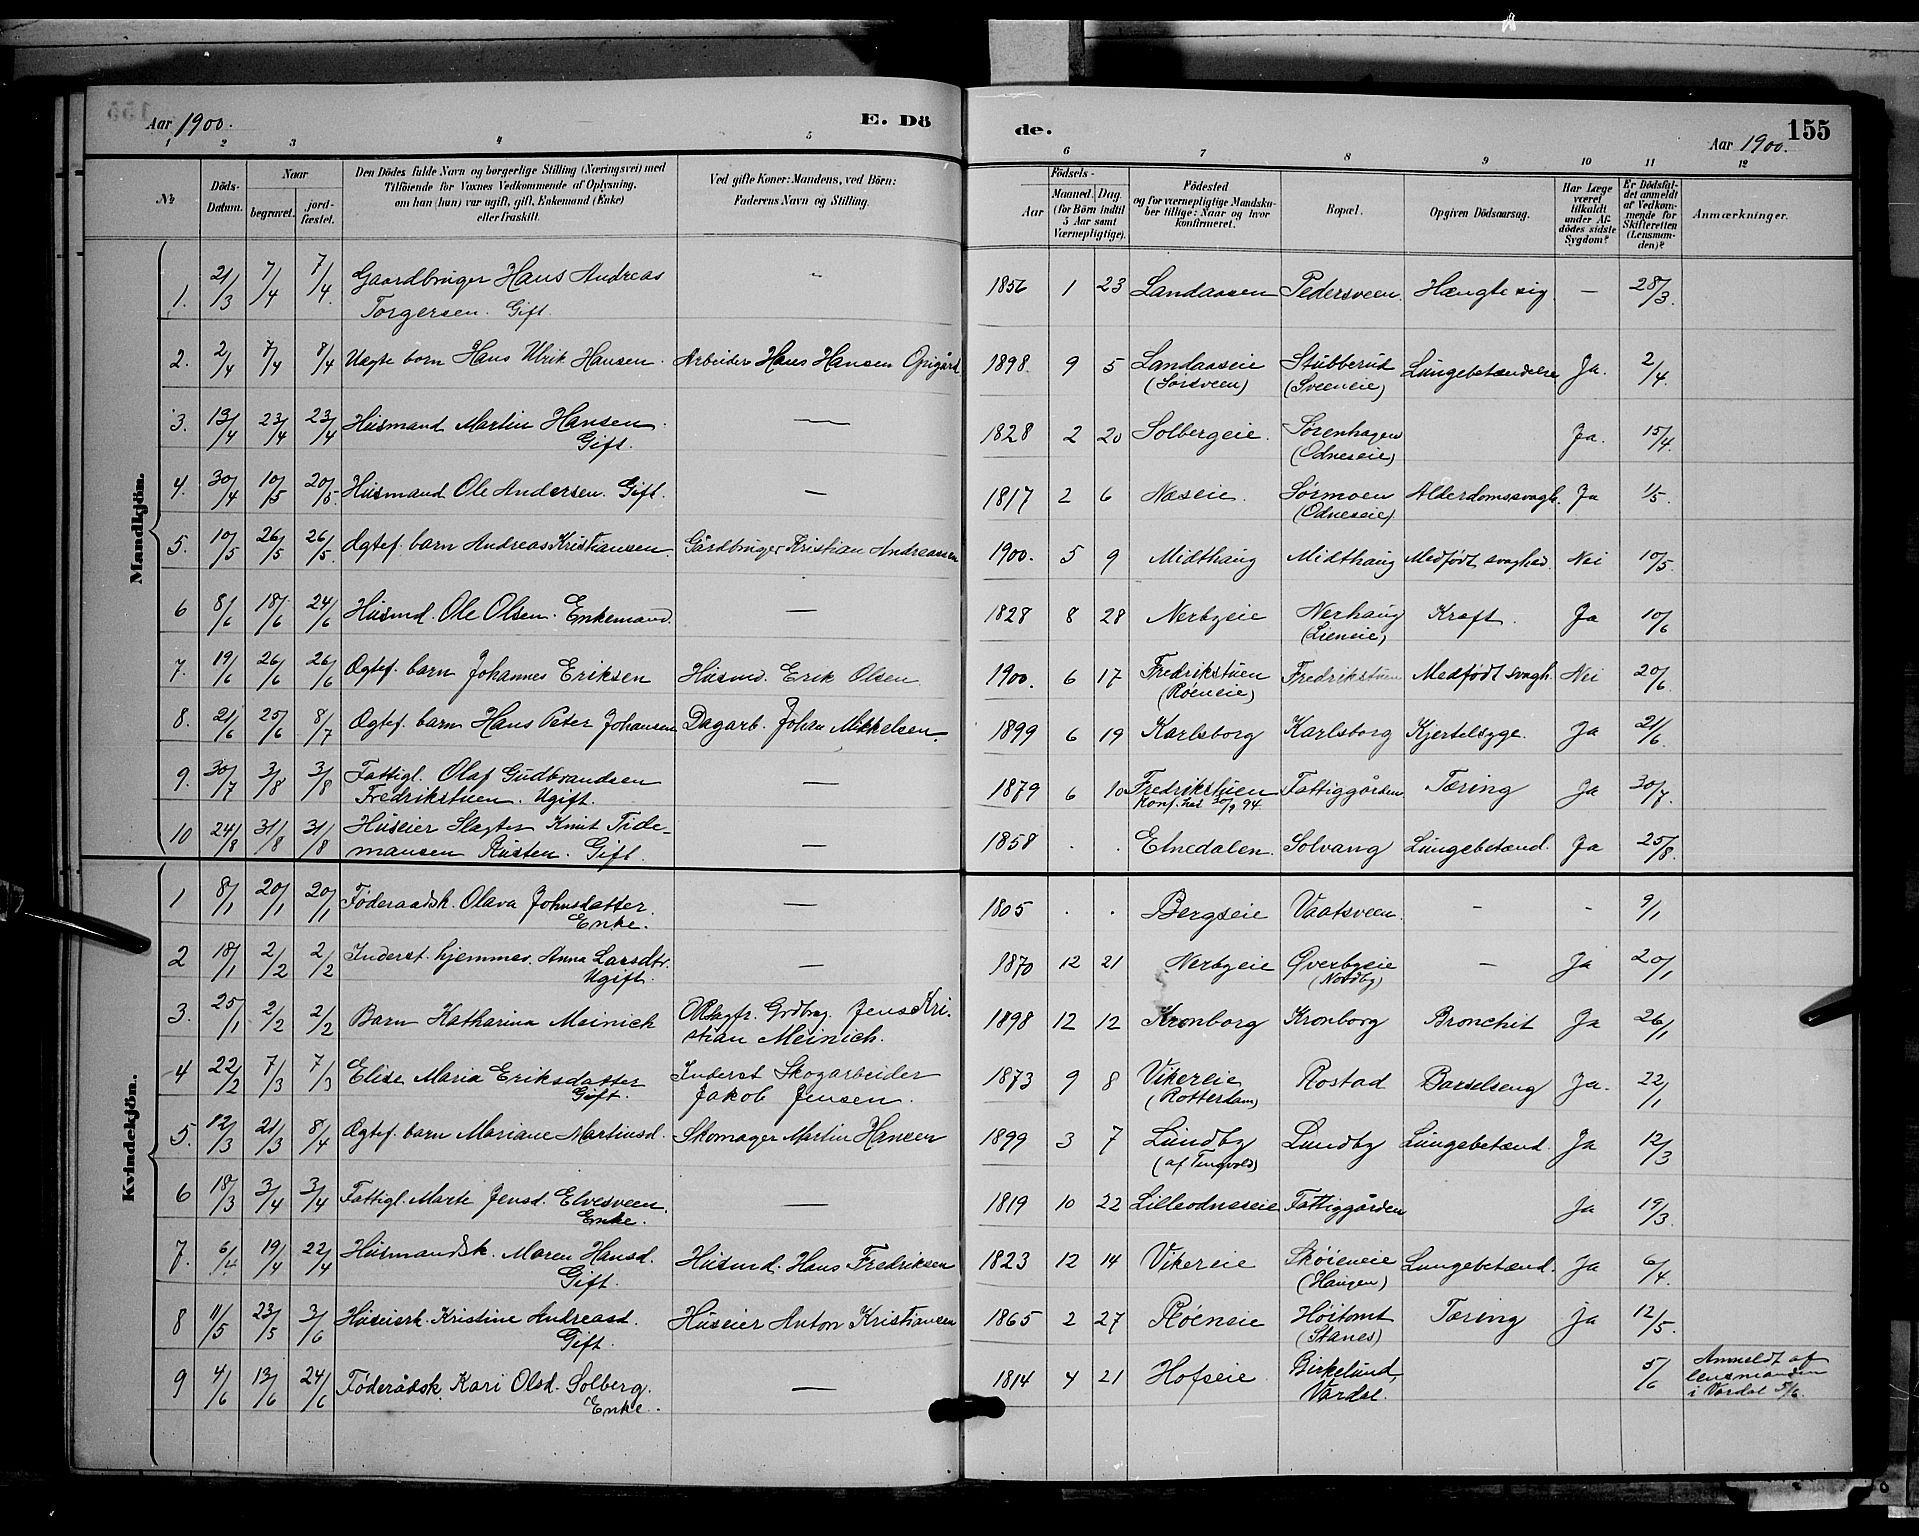 Aar 1900. E. Dö de. Aar 1900. 155
1 2 3 4 5 6 7 8 9 10 11 12
№ Döds-Datum. Naar begravet. jordfæstet. Den Dödes fulde Navn og borgerlige Stilling (Næringsvei) med Tilföiende for Voxnes Vedkommende af Oplysning, om han (hun) var ugift, gift, Enkemand (Enke) eller fraskilt. Ved gifte Koner: Mandens, ved Börn: Faderens Navn og Stilling. Aar Födsels- Maaned. Dag. (for Börn indtil 5 Aar samt Værnepligtige). Födested og for værnepligtige Mandskaber tillige: Naar og hvor konfirmeret. Bopæl. Opgiven Dödsaarsag. Har Læge været tilkaldt under Afdödes sidste Sygdom? Er Dödsfaldet anmeldt af Vedkommende for Skifteretten (Lensmanden)? Anmærkninger.
Mandkjön.
1. 21/3 7/4 7/4. Gaardbruger Hans Andreas 1856 1 23 Landaasen Pedersveen. Hængte sig. — 28/3.
Torgersen. Gift.
2. 2/4 7/4 8/4 Uægte barn Hans Ulrik Hansen. Arbeider Hans Hansen Opigård 1898. 9 5 Landaaseie Stubberud Lungebetændelse Ja. 2/4.
(Sørsveen) (Sveeneie)
3. 13/4 23/4 23/4 Husmand Martin Hansen. — 1828 2 20 Solbergeie. Sørenhagen Ja. 15/4.
Gift. (Odneseie)
4. 30/4 10/5 20/5. Husmand Ole Andersen. Gift. — 1817 2 6 Næseie. Sørmoen Alderdomssvagh. Ja 1/5.
(Odneseie)
5. 10/5 26/5 26/5. Ægtef. barn Andreas Kristiansen Gårdbruger Kristian Andreassen 1900. 5 9 Midthaug Midthaug Medfødt svaghed. Nei 10/5.
6 8/6 18/6 24/6 Husmd. Ole Olsen. Enkemand. — 1828 8 28 Nerbyeie Nerhaug Kræft. Ja 10/6
(Lieneie)
7. 19/6 26/6 26/6 Ægtef. barn Johannes Eriksen Husmd. Erik Olsen 1900. 6 17 Fredrikstuen Fredrikstuen Medfødt svagh. Nei 20/6.
(Røeneie)
8. 21/6 25/6 8/7 Ægtef. barn Hans Peter Johansen Dagarb. Johan Mikkelsen. 1899 6 19 Karlsborg Karlsborg Kjertelsyge. Ja 21/6.
9 30/7 3/8 3/8 Fattigl. Olaf Gudbrandsen — 1879 6 10 Fredrikstuen Fattiggården Tæring Ja 30/7.
Fredrikstuen. Ugift.
10 24/8 31/8 31/8 Huseier Slagter Knut Tide- — 1858. . . Etnedalen. Solvang Lungebetænd. Ja 25/8.
mansen Rusten. Gift.
Kvindekjön.
1 8/1 20/1 20/1 Føderaadsk. Olava Johnsdatter. — 1805 . . Bergseie Vaatsveen. - - 9/1
Enke.
2 18/1 2/2 2/2 Inderst. hjemmev. Anna Larsdtr. — 1870 12 21 Nerbyeie Øverbyeie — Ja 20/1
Ugift. (Nordby)
3. 25/1 2/2 2/2 Barn Katharina Meinich Grdbrg. Jens Kri- 1898 12 12 Kronborg Kronborg Bronchit Ja 26/1
stian Meinich.
4 22/2 7/3 7/3 Elise Maria Eriksdatter Inderst Skogarbeider 1873 9 8 Vikereie Rostad Barselseng Ja. 22/1
Gift. Jakob Jensen. (Rotterdam)
5. 12/3 21/3 8/4 Ægtef. barn Mariane Martinsd. Skomager Martin Hansen 1899 3 7 Lundby Lundby Lungebetænd. Ja 12/3
(af Tingvold)
6 18/3 3/4 3/4 Fattigl. Marte Jensd. Elvesveen. — 1819 10 22 Lilleodneseie Fattiggården Ja 19/3.
Enke.
7. 6/4 19/4 22/4 Husmandsk. Maren Hansd. Husmd. Hans Fredriksen 1823 12 14 Vikereie Skøieneie Lungebetænd. Ja 6/4.
Gift. (Haugen)
8 11/5 23/5 3/6 Huseiersk. Kristine Andreasd. Huseier Anton Kristiansen 1865 2 27 Røeneie Høitomt Tæring Ja 12/5.
Gift. (Stanes)
9 4/6 13/6 24/6 Føderådsk. Kari Olsd. Solberg. — 1814 4 21 Hofseie Birkelund, 5/6 Anmeldt af
Enke. Vardal. lensmanden
i Vardal 5/6.